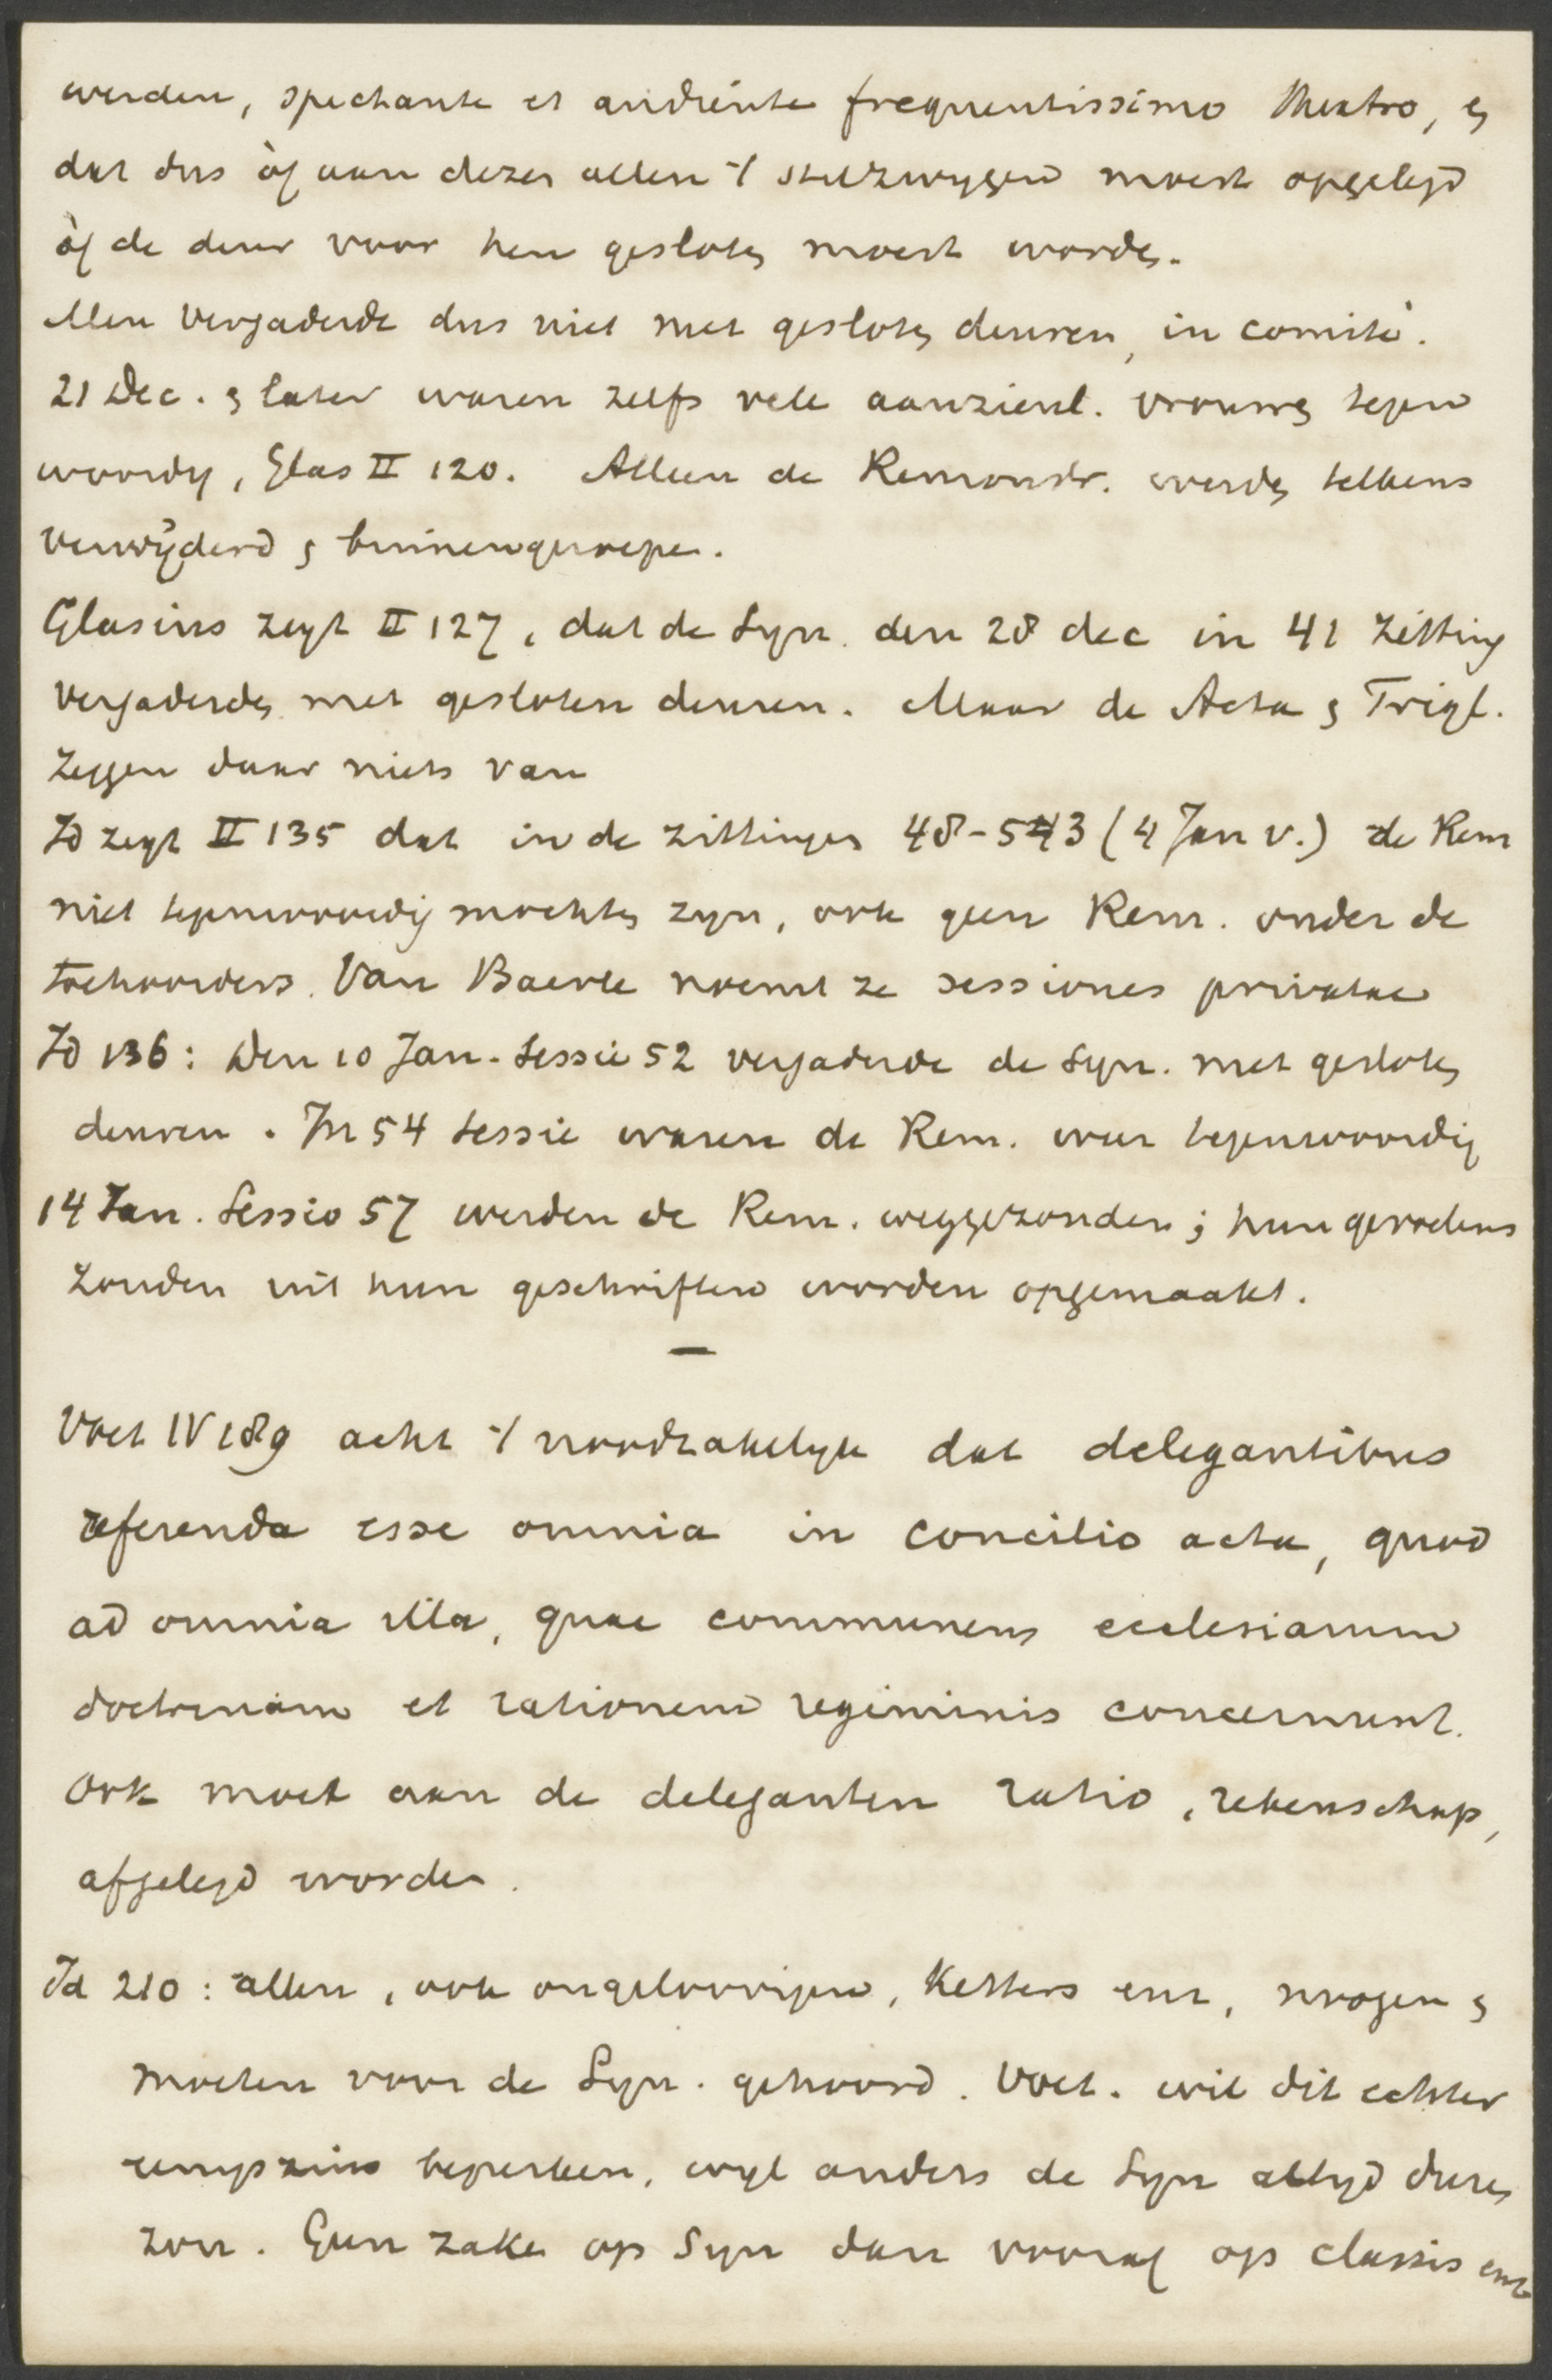 werden, spectante et audiente frequentissimo theatro, en
dat dus òf aan dezen allen 't stilzwygen moest opgelegd
òf de deur voor hen gesloten moest worden.
Men vergaderde dus niet met gesloten deuren, in comité.
21 Dec. en later waren zelfs vele aanzienl. vrouwen tegen
woordig, Glas II 120. Alleen de Remonstr. werden telkens
verwijderd en binnengeroepen.
Glasius zegt II 127, dat de Syn. den 28 dec in 41 zitting
vergaderde, met gesloten deuren. Maar de Acta en Trigl.
zeggen daar niets van
Id zegt II 135 dat in de zittingen 48-53 (4 Jan v.) de Rem
niet tegenwoordig mochten zyn, ook geen Rem. onder de
toehoorders. Van Baerle noemt ze sessiones privatae
Id 136: Den 10 Jan. Sessie 52 vergaderde de Syn. met gesloten
deuren. In 54 sessie waren de Rem. weer tegenwoordig
14 Jan. Sessio 57 werden de Rem. weggezonden; hun gevoelens
zouden uit hun geschriften worden opgemaakt.
—
Voet IV 189 acht 't noodzakelyk dat delegantibus
referenda esse omnia in concilio acta, quod
ad omnia illa, quae communem ecclesiarum
doctrinam et rationem regiminis concernunt.
Ook moet aan de deleganten ratio, rekenschap,
afgelegd worden.
Id 210: allen, ook ongeloovigen, ketters enz, mogen en
moeten voor de Syn. gehoord. Voet. wil dit echter
eenigszins beperken, wyl anders de Syn altyd duren
zou. Geen zaken op Syn dan vooraf op classis enz